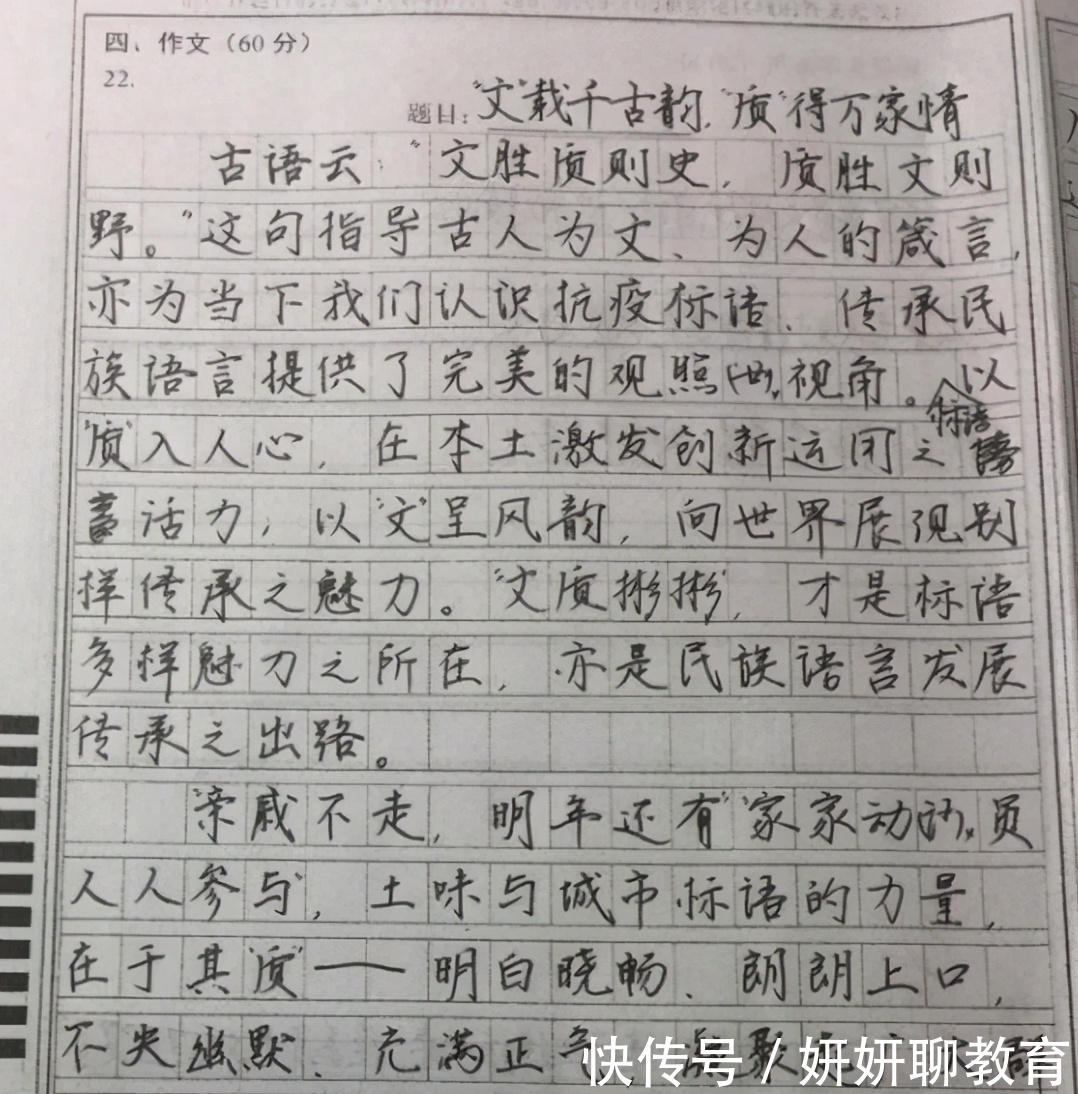 四、作文（60分）
22.
题目："文"载千古韵，"质"得万家情
古语云："文胜质则史，质胜文则
野。"这句指导古人为文、为人的箴言，
亦为当下我们认识抗疫标语、传承民
族语言提供了完美的观照视角。以
标语
"质"入人心，在本土激发创新运用之
活力，以"文"呈风韵，向世界展现别
样传承之魅力。"文质彬彬"，才是标语
多样魅力之所在，亦是民族语言发展
传承之出路。
"亲戚不走，明年还有""家家动员
人人参与"，土味与城市标语的力量，
在于其"质"——明白晓畅、朗朗上口，
不失幽默、充满正
快传号/妍妍聊教育